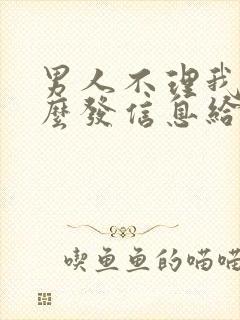 男人不理我
麼發信息給
喫魚魚的喵喵